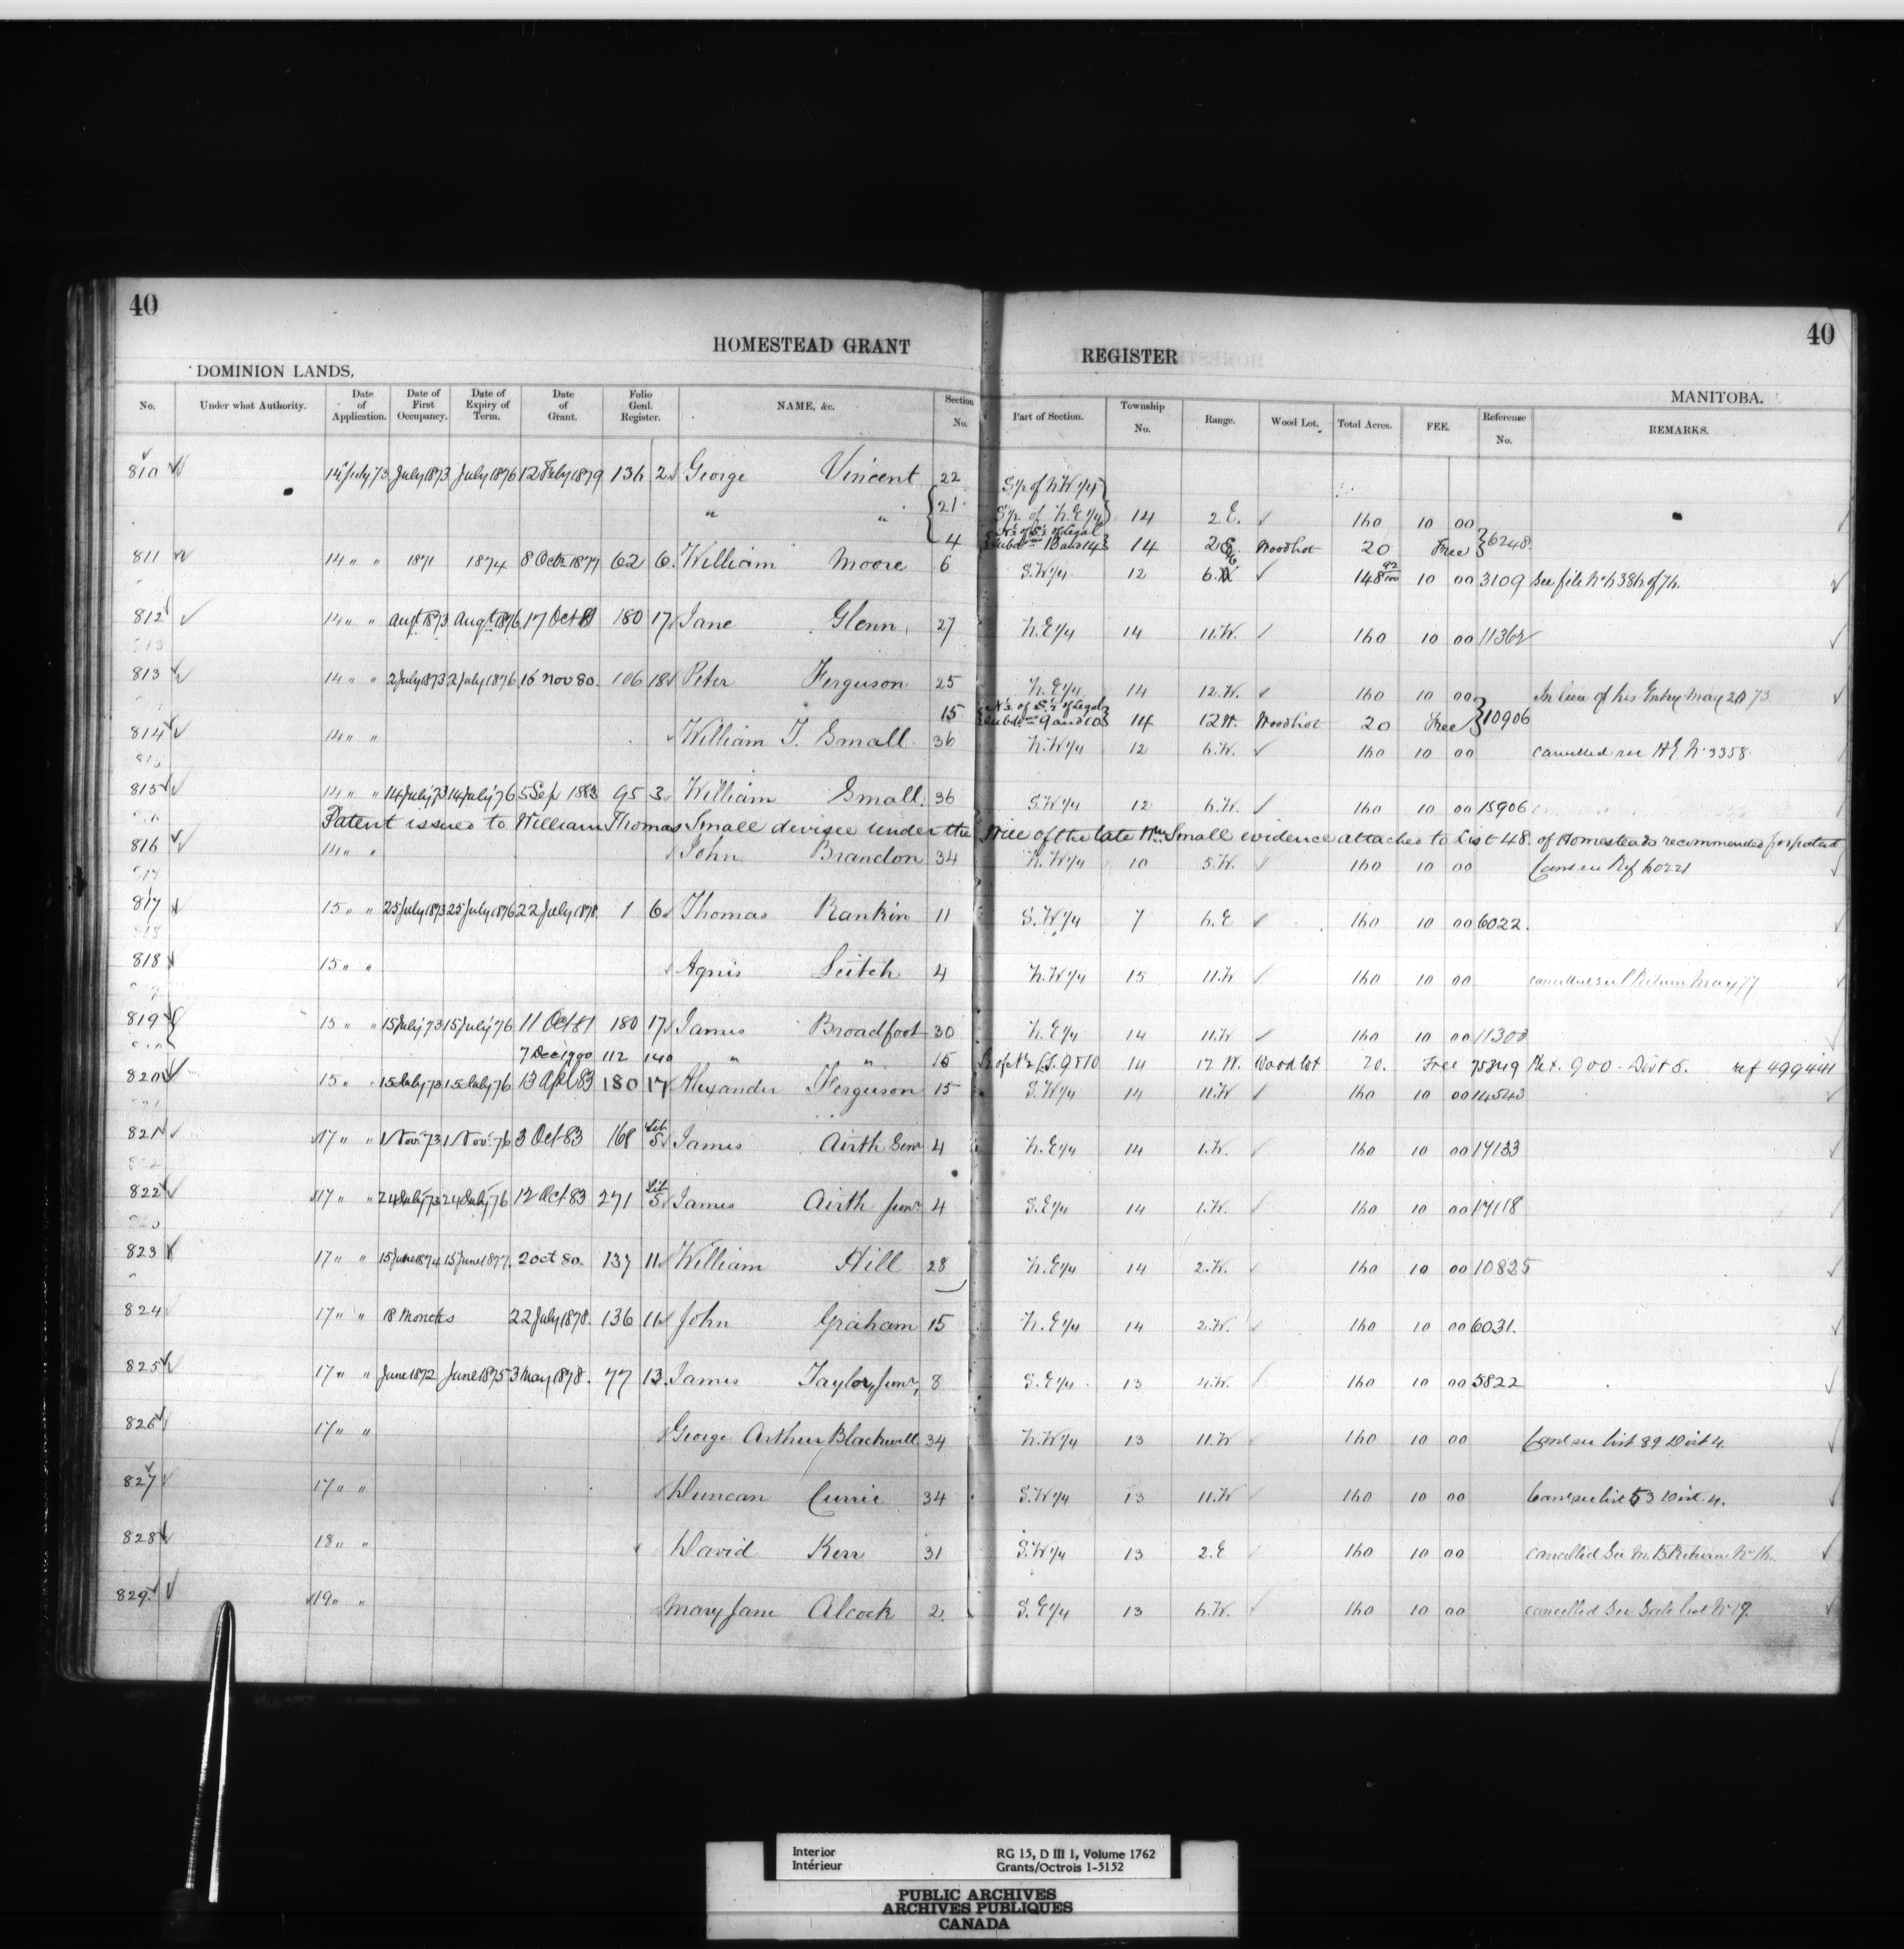 40
40
HOMESTEAD GRANT REGISTER
DOMINION LANDS, MANITOBA.
No. Under what Authority. Date of Application. Date of First Occupancy. Date of Expiry of Term. Date of Grant. Folio Genl. Register. NAME, &c. Section No. Part of Section. Township No. Range. Wood Lot. Total Acres. FEE. Reference No. REMARKS.
810 14 July 73 July 1873 July 1876 12 Feby 1879 134 2 George Vincent 22 S½ of N.W¼
" " 21 S½ of N.E¼ 14 2.E. 160 10 00
4 N½ of S½ of Legal Subdns 13 and 14 14 2 E. Woodlot 20 Free 6248.
811 14 " " 1871 1874 8 Octr 1877 62 6 William Moore 6 S.W¼ 12 6. 148 92/100 10 00 3109 See file
812 14 " " Augt 1873 Augt 1876 17 Oct 81 180 17 Jane Glenn 27 N.E¼ 14 11.W. 160 10 00
813 14 " " 2 July 1873 2 July 1876 16 Nov 80. 106 18 Peter Ferguson 25 N.E¼ 14 12.W. 160 10 00 In lieu of his Entry May 73
15 N½ of S½ of Legal Subdns 9 and 10 14 12 W. Woodlot 20 Free 10906
814 14 " " William T. Small 36 N.W¼ 12 6.W. 160 10 00 cancelled see H.E. No 3358
815 14 " " 14 July 73 14 July 76 5 Sep 1883 95 3 William Small 36 S.W¼ 12 6.W. 160 10 00 15906
Patent issued to William Thomas Small devisee under the Will of the late Wm Small evidence attached to List 48. of Homesteads recommended for patent
816 14 " " John Brandon 34 N.W¼ 10 5.W. 160 10 00 Canc see Ref 60221
817 15 " " 25 July 1873 25 July 1876 22 July 1878. 1 6 Thomas Rankin 11 S.W¼ 7 6.E 160 10 00 6022.
818 15 " " Agnis Leitch 4 N.W¼ 15 11.W 160 10 00 May 77
819 15 " " 15 July 73 15 July 76 11 Oct 81 180 17 James Broadfoot 30 N.E¼ 14 11.W. 160 10 00 11303
7 Dec 1900 112 140 " " 15 S½ of N½ L.S. 9 & 10 14 12 W. Wood lot 20. Free 75349 Pat. 900. Dist 5. ref 499441
820 15 " " 15 July 73 15 July 76 13 Apl 83 180 17 Alexander Ferguson 15 S.W¼ 14 11.W 160 10 00 14543
821 17 " " 1 Nov. 73 1 Nov. 76 3 Oct 83 168 Lib 5 James Airth Senr 4 N.E¼ 14 1.W. 160 10 00 17133
822 17 " " 24 July 73 24 July 76 12 Oct 83 271 Lib 5 James Airth Junr 4 S.E¼ 14 1.W. 160 10 00 17118
823 17 " " 15 June 1874 15 June 1877. 2 Oct 80. 137 11 William Hill 28 N.E¼ 14 2.W. 160 10 00 10825
824 17 " " 18 Months 22 July 1878. 136 11 John Graham 15 N.E¼ 14 2.W. 160 10 00 6031.
825 17 " " June 1872 June 1875 3 May 1878. 77 13 James Taylor, Junr, 8 S.E¼ 13 4.W. 160 10 00 5822
826 17 " " George Arthur Blackwell 34 N.W¼ 13 11.W 160 10 00 Canc see List 89 Dist 4.
827 17 " " Duncan Currie 34 S.W¼ 13 11.W 160 10 00 Canc see list 53 Dist. 4.
828 18 " " David Kerr 31 S.W¼ 13 2.E 160 10 00 cancelled See Return
829 19 " " Mary Jane Alcock 2 S.E¼ 13 6.W. 160 10 00 cancelled See Sale list No 19.
Interior RG 15, D III 1, Volume 1762
Intérieur Grants/Octrois 1-5152
PUBLIC ARCHIVES
ARCHIVES PUBLIQUES
CANADA